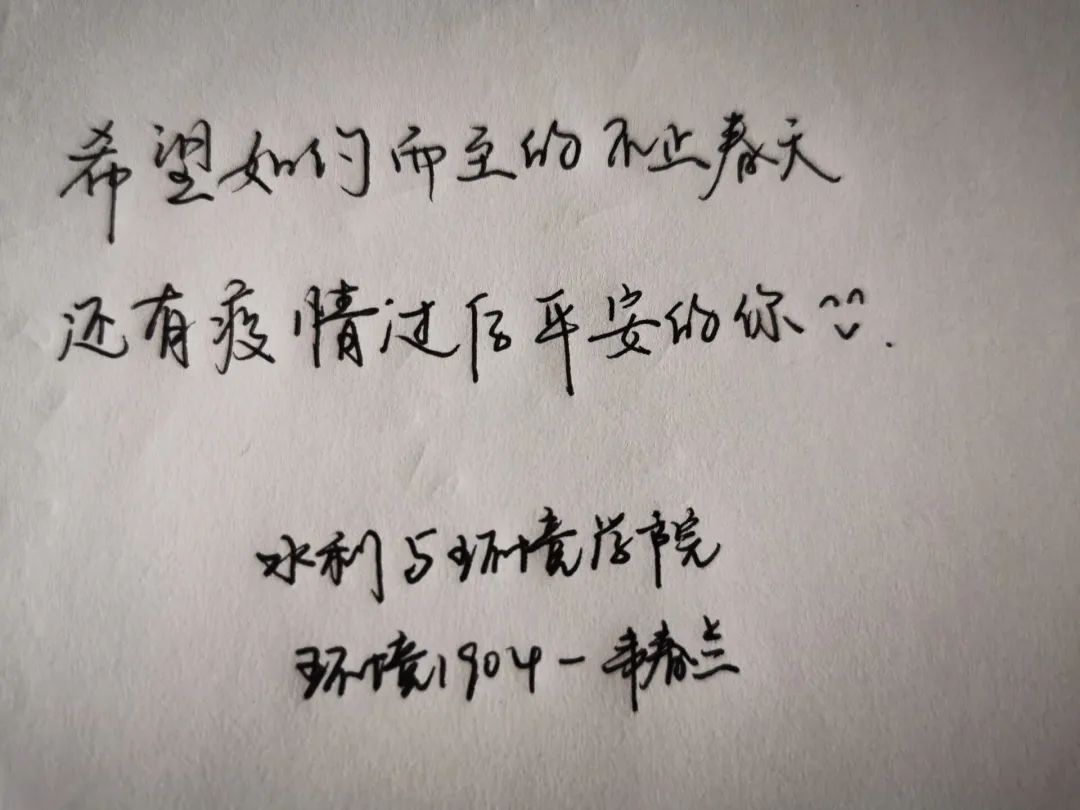 希望如约而至的不止春天
还有疫情过后平安的你^^.
水利与环境学院
环境1904-韦春兰